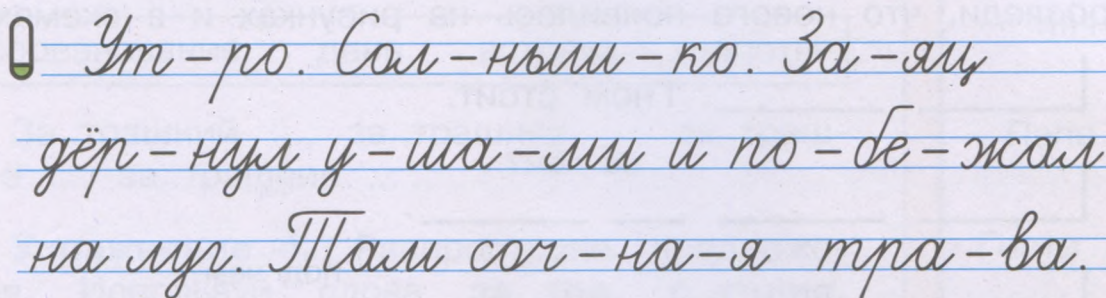 Ут-ро. Сол-ныш-ко. За-яц
дёр-нул у-ша-ми и по-бе-жал
на луг. Там соч-на-я тра-ва.